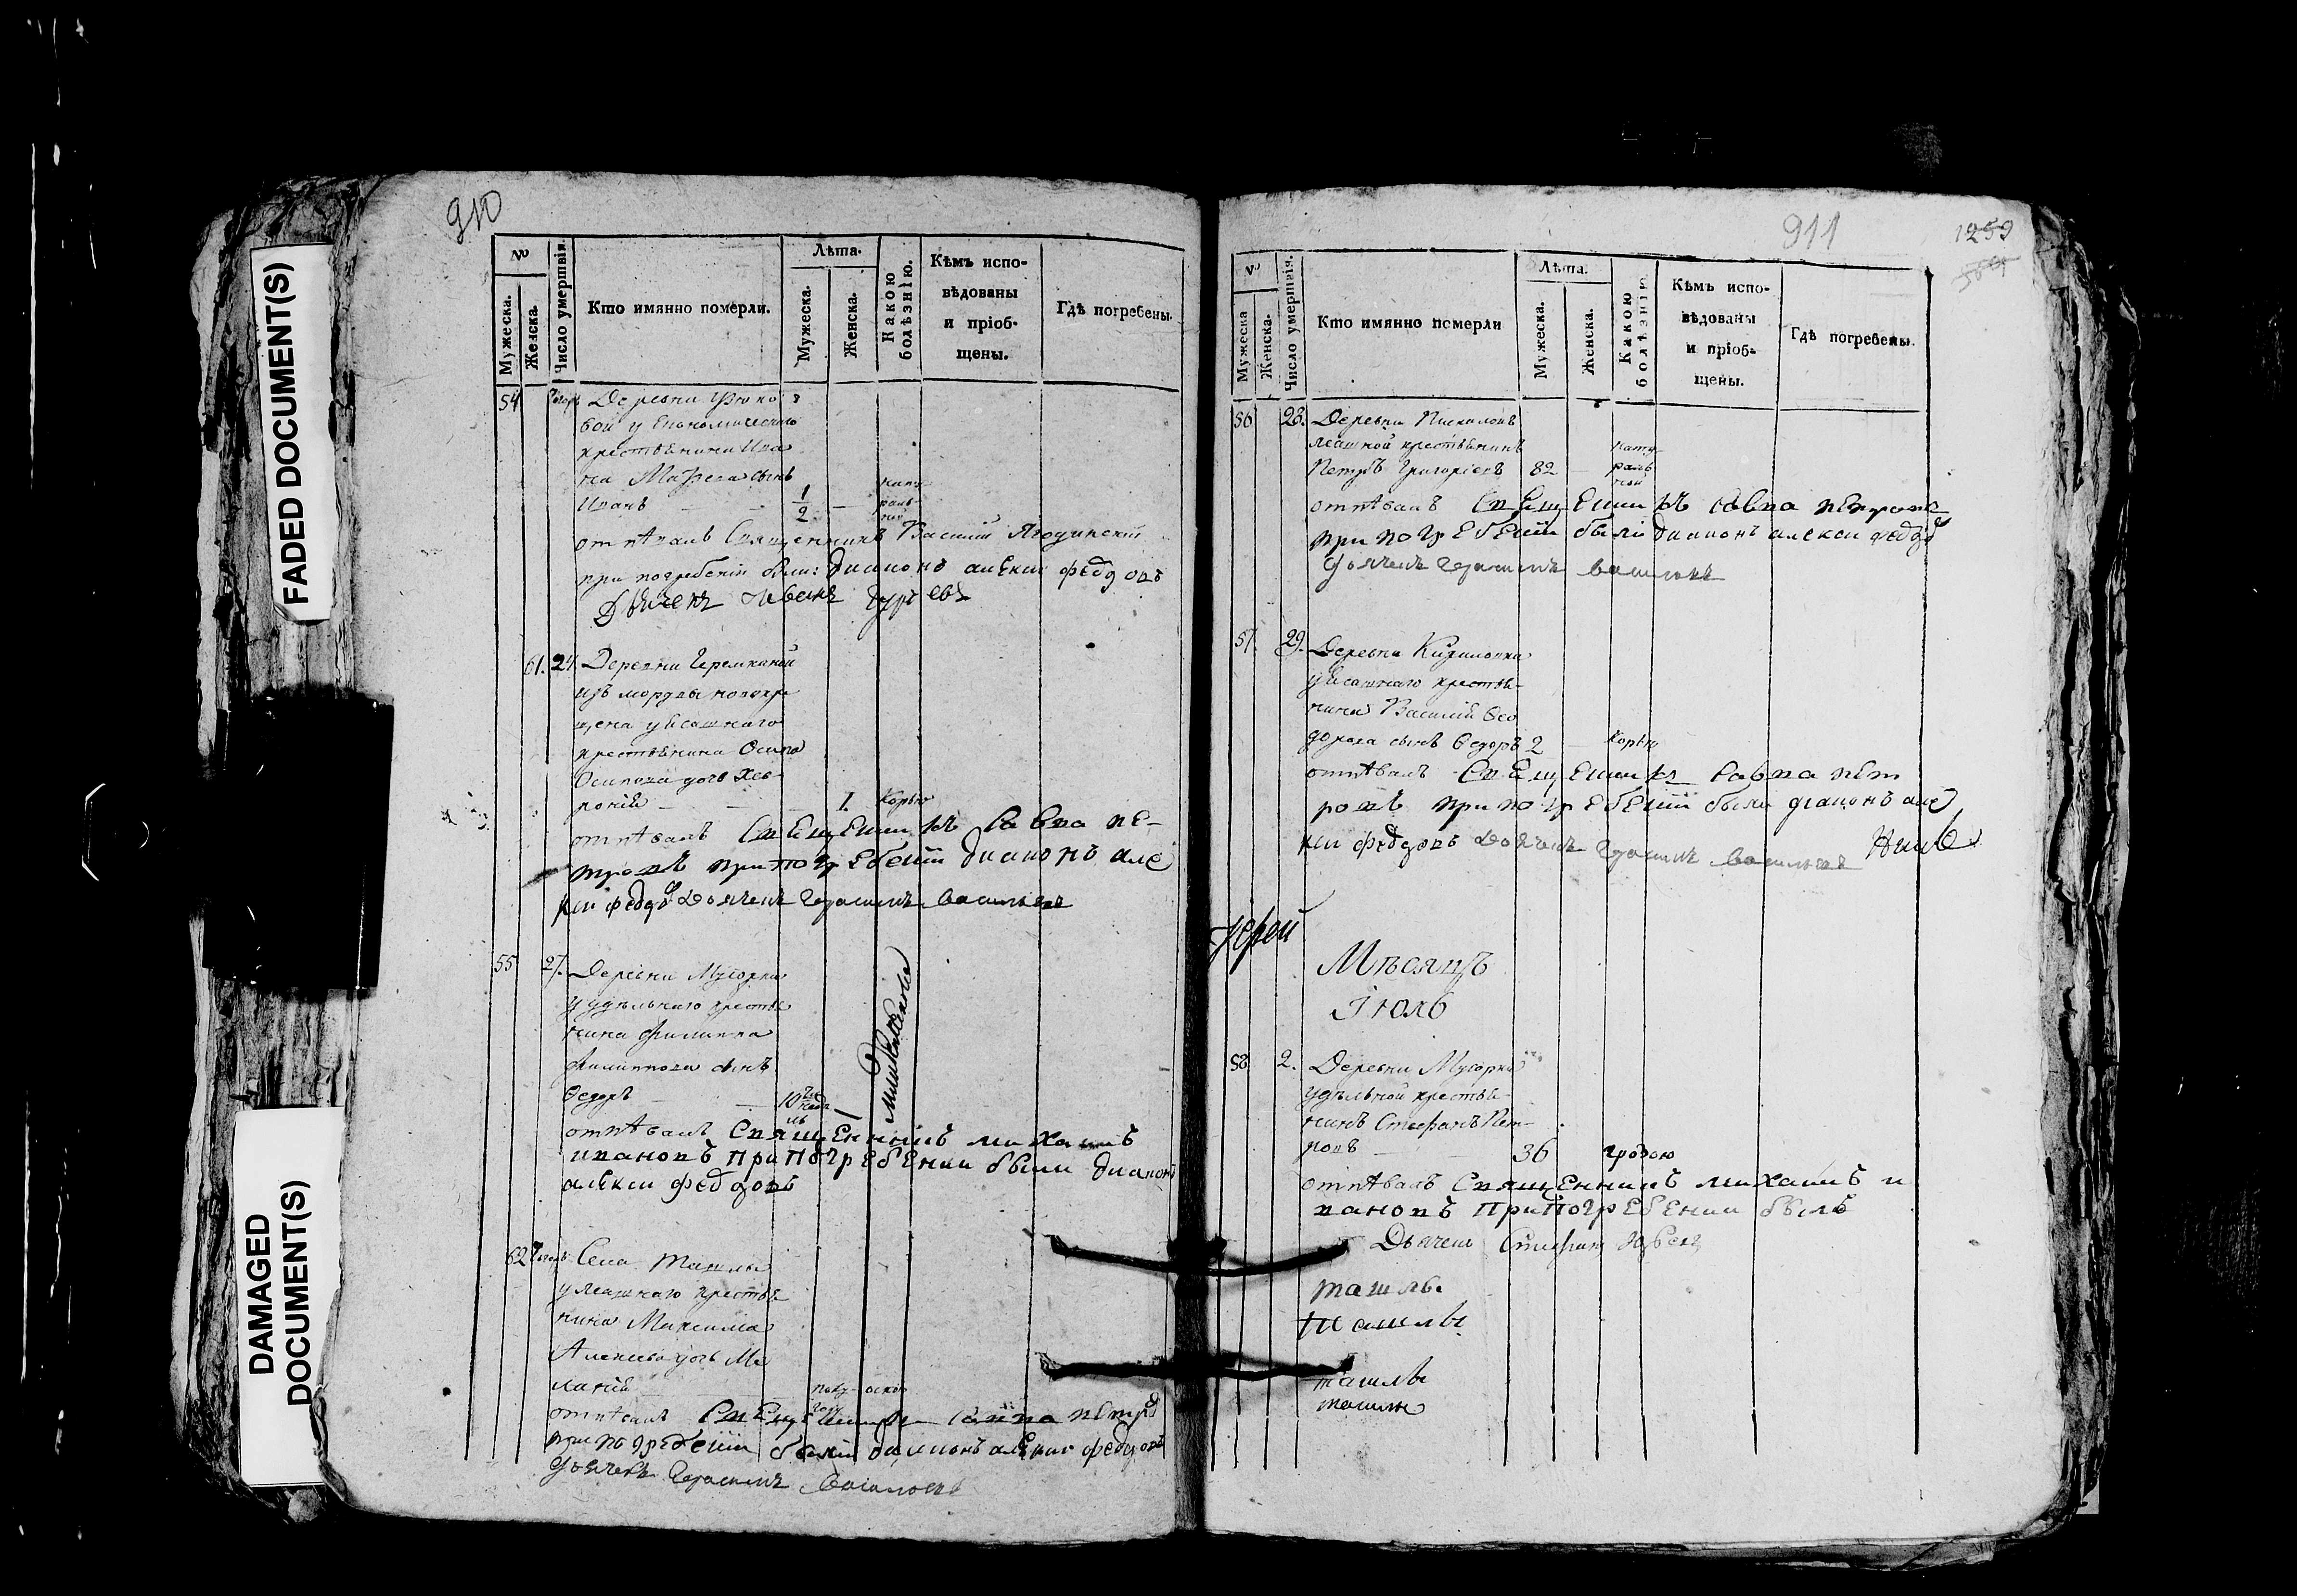 FADED DOCUMENT(S)
DAMAGED DOCUMENT(S)
910
№
Мужеска.
Женска.
Число умертвія.
Кто имянно померли.
Лѣта.
Мужеска.
Женска.
Какою болѣзнію.
Кѣмъ испо-
вѣдованы
и пріоб-
щены.
Гдѣ погребены.
54 Деревни
вой у Економическаго
крестьянина Ива
на сынъ
Иванъ 1/2 — нату
раль
ной
отпѣвалъ Священникъ Василій Ягодинскій
при погребеніи были: диаконъ алЕкси федоровъ
Дьячекъ Иванъ Гурьевъ
61. 24. Деревни Черемкиной
изъ мордвы новокре
щена у ясашнаго
крестьянина Осипа
Осипова дочь Хев
роній — 1. Корью
отпѣвалъ СпЕщЕникъ Савва пЕ-
тровъ при погрЕбЕніи диаконъ але
кси федоровъ Дьячекъ Герасимъ Васильевъ
55 27. Деревни Мусорки
у удѣльнаго крестья
нина Филиппа
Филиппова сынъ
Ѳедоръ — 10
отпѣвалъ СпящЕнникъ михаилъ
ивановъ при погрЕбЕнии были диаконъ
алЕкси федоровъ
62 Села Ташлы
у ясашнаго крестья
нина Максима
Алексева дочь Ме
ланія — полу- оспою
году
отпѣвалъ СпЕщЕникъ Савва пЕтров
при погрЕбЕніи были диаконъ алЕкси федоровъ
Дьячекъ Герасимъ Васильевъ
911
1259
№
Мужеска
Женска.
Число умертвія.
Кто имянно померли
Лѣта.
Мужеска.
Женска.
Какою болѣзнію
Кѣмъ испо-
вѣдованы
и пріоб-
щены.
Гдѣ погребены.
56 28. Деревни Пискаловъ
ясашной крестьянинъ нату
Петръ Григорьевъ 82 — раль
ной
отпѣвалъ СпЕщЕникъ Савва пЕтровъ
при погрЕбЕніи были диаконъ алекси федоров
Дьячекъ Герасимъ Васильевъ
57. 29. Деревни Кириловки
у ясашнаго крестья-
нина Василій Ѳео
дорова сынъ Ѳедоръ 2 — Корью
отпѣвалъ СпЕщЕникъ Савва пЕт
ровъ при погрЕбЕніи были диаконъ але
кси федоровъ Дьячекъ Герасимъ Васильевъ
Іерей
Мѣсяцъ
Іюль
58 2. Деревни Мусорки
удѣльной крестья-
нинъ Стефанъ Пет-
ровъ — 36 грозою
отпѣвалъ СпящЕнникъ михаилъ и
вановъ при погрЕбЕнии былъ
Дьячекъ Стефанъ
ташлы
ташлы
ташлы
ташлы